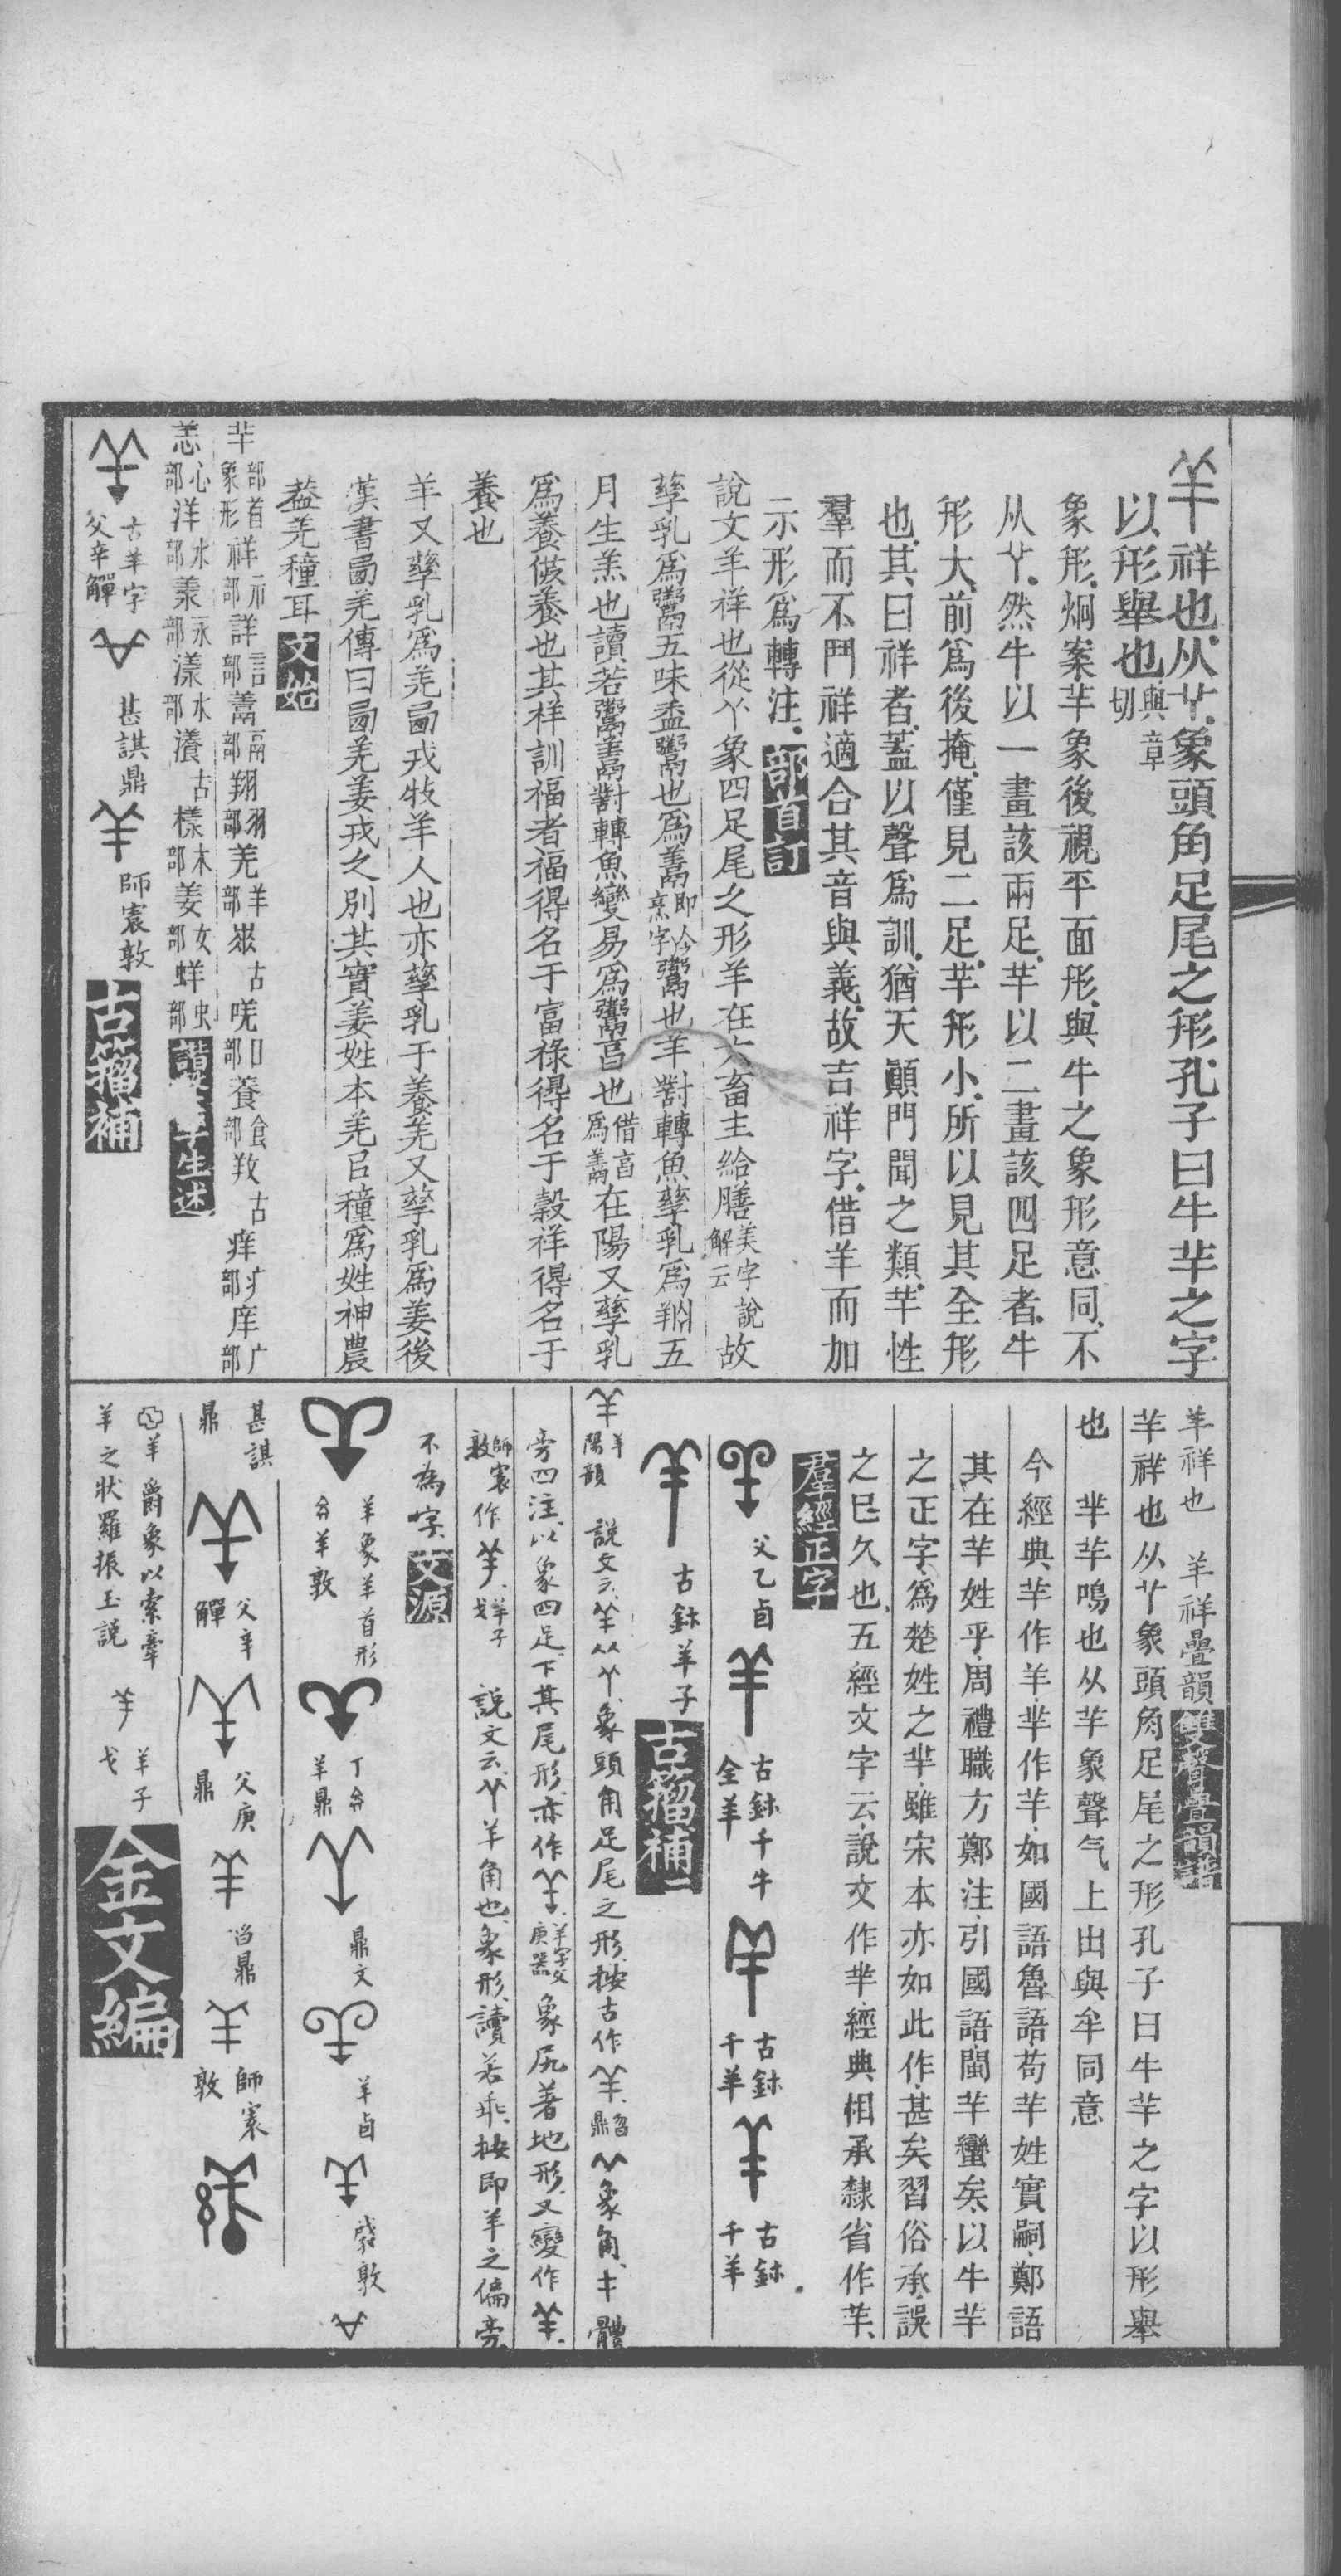 羊祥也从𦫳象頭角足尾之形孔子曰牛羊之字
以形舉也與章切
象形炯案羊象後視平面形與牛之象形意同不
从𦫳然牛以一畫該兩足羊以二畫該四足者牛
形大前爲後掩僅見二足羊形小所以見其全形
也其曰祥者蓋以聲爲訓猶天顚門聞之類羊性
羣而不鬥祥適合其音與義故吉祥字借羊而加
示形爲轉注部首訂
說文羊祥也從𦫳象四足尾之形羊在六畜主給膳美字說解云故
孳乳爲鬻五味盉鬻也爲鬻即今烹字鬻也羊對轉魚孳乳爲羜五
月生羔也讀若鬻對轉魚變易爲也在陽又孳乳
爲養供養也其祥訓福者福得名于富祿得名于穀祥得名于
養也
羊又孳乳爲羌西戎牧羊人也亦孳乳于養羌又孳乳爲姜後
漢書西羌傳曰西羌姜戎之別其實姜姓本羌㠯種爲姓神農
蓋羌種耳文始
羊部首象形祥示部詳言部鬻部翔羽部羌羊部古部養食部𢼝古痒疒部庠广部
恙心部洋水部羕永部漾水部瀁古樣木部姜女部蛘虫部
古羊字父辛觶 甚諆鼎 師寰敦古籀補
羊祥也 羊祥疊韻雙聲疊韻譜
羊祥也从𦫳象頭角足尾之形孔子曰牛羊之字以形舉
也 芈羊鳴也从羊象聲气上出與牟同意
今經典羊作羊芈作芈如國語魯語苟芈姓實嗣鄭語
其在芈姓乎周禮職方鄭注引國語閩芈蠻矣以牛羊
之正字爲楚姓之芈雖宋本亦如此作甚矣習俗承誤
之巳久也五經文字云說文作羊經典相承隸省作羊
羣經正字
父乙卣 古鉨千牛全羊 古鉨千羊 古鉨千羊
古鉨羊子古籀補二
羊陽韻 說文云从𦫳象頭角足尾之形按古作象角體
旁四注以象四足下其尾形亦作象尻著地形又變作
師寰敦作羊子戈 說文云𦫳羊角也象形讀若乖按即羊之偏旁
不為字文源
羊象羊首形 羊敦 羊鼎 鼎文 羊卣 敦
甚諆鼎 父辛觶 父庚鼎 舀鼎 師寰敦
羊爵象以索牽羊之狀羅振玉說 羊子戈金文編